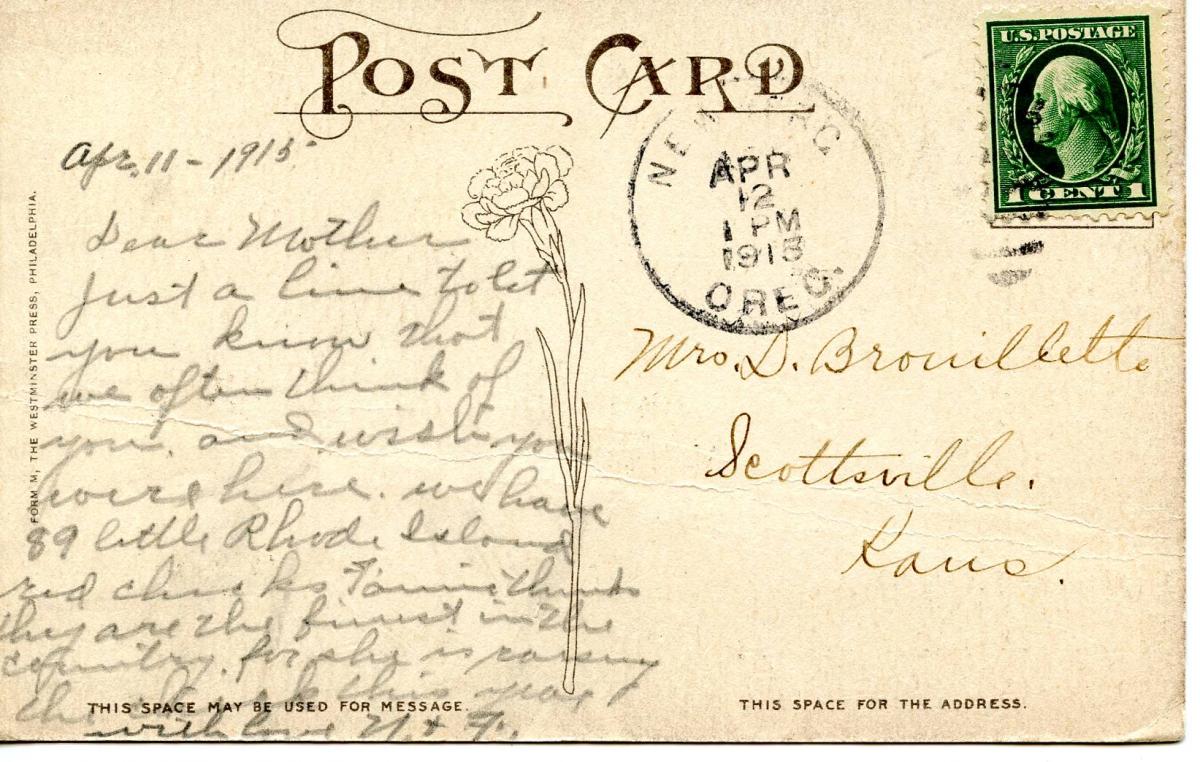 POST CARD
U.S. POSTAGE
1 CENT 1
NEW
APR
12
1 PM
1915
OREG.
Apr. 11 - 1915
Dear Mother
Just a line to let
you know that
we often think of
you. and wish you
were here. we have
89 little Rhode Island
red chicks Fannie thinks
they are the finest in the
country. for she is raising
the this year
with love N. & F.
Mrs. D. Brouillette
Scottsville.
Kans.
FORM M, THE WESTMINSTER PRESS, PHILADELPHIA.
THIS SPACE MAY BE USED FOR MESSAGE.
THIS SPACE FOR THE ADDRESS.